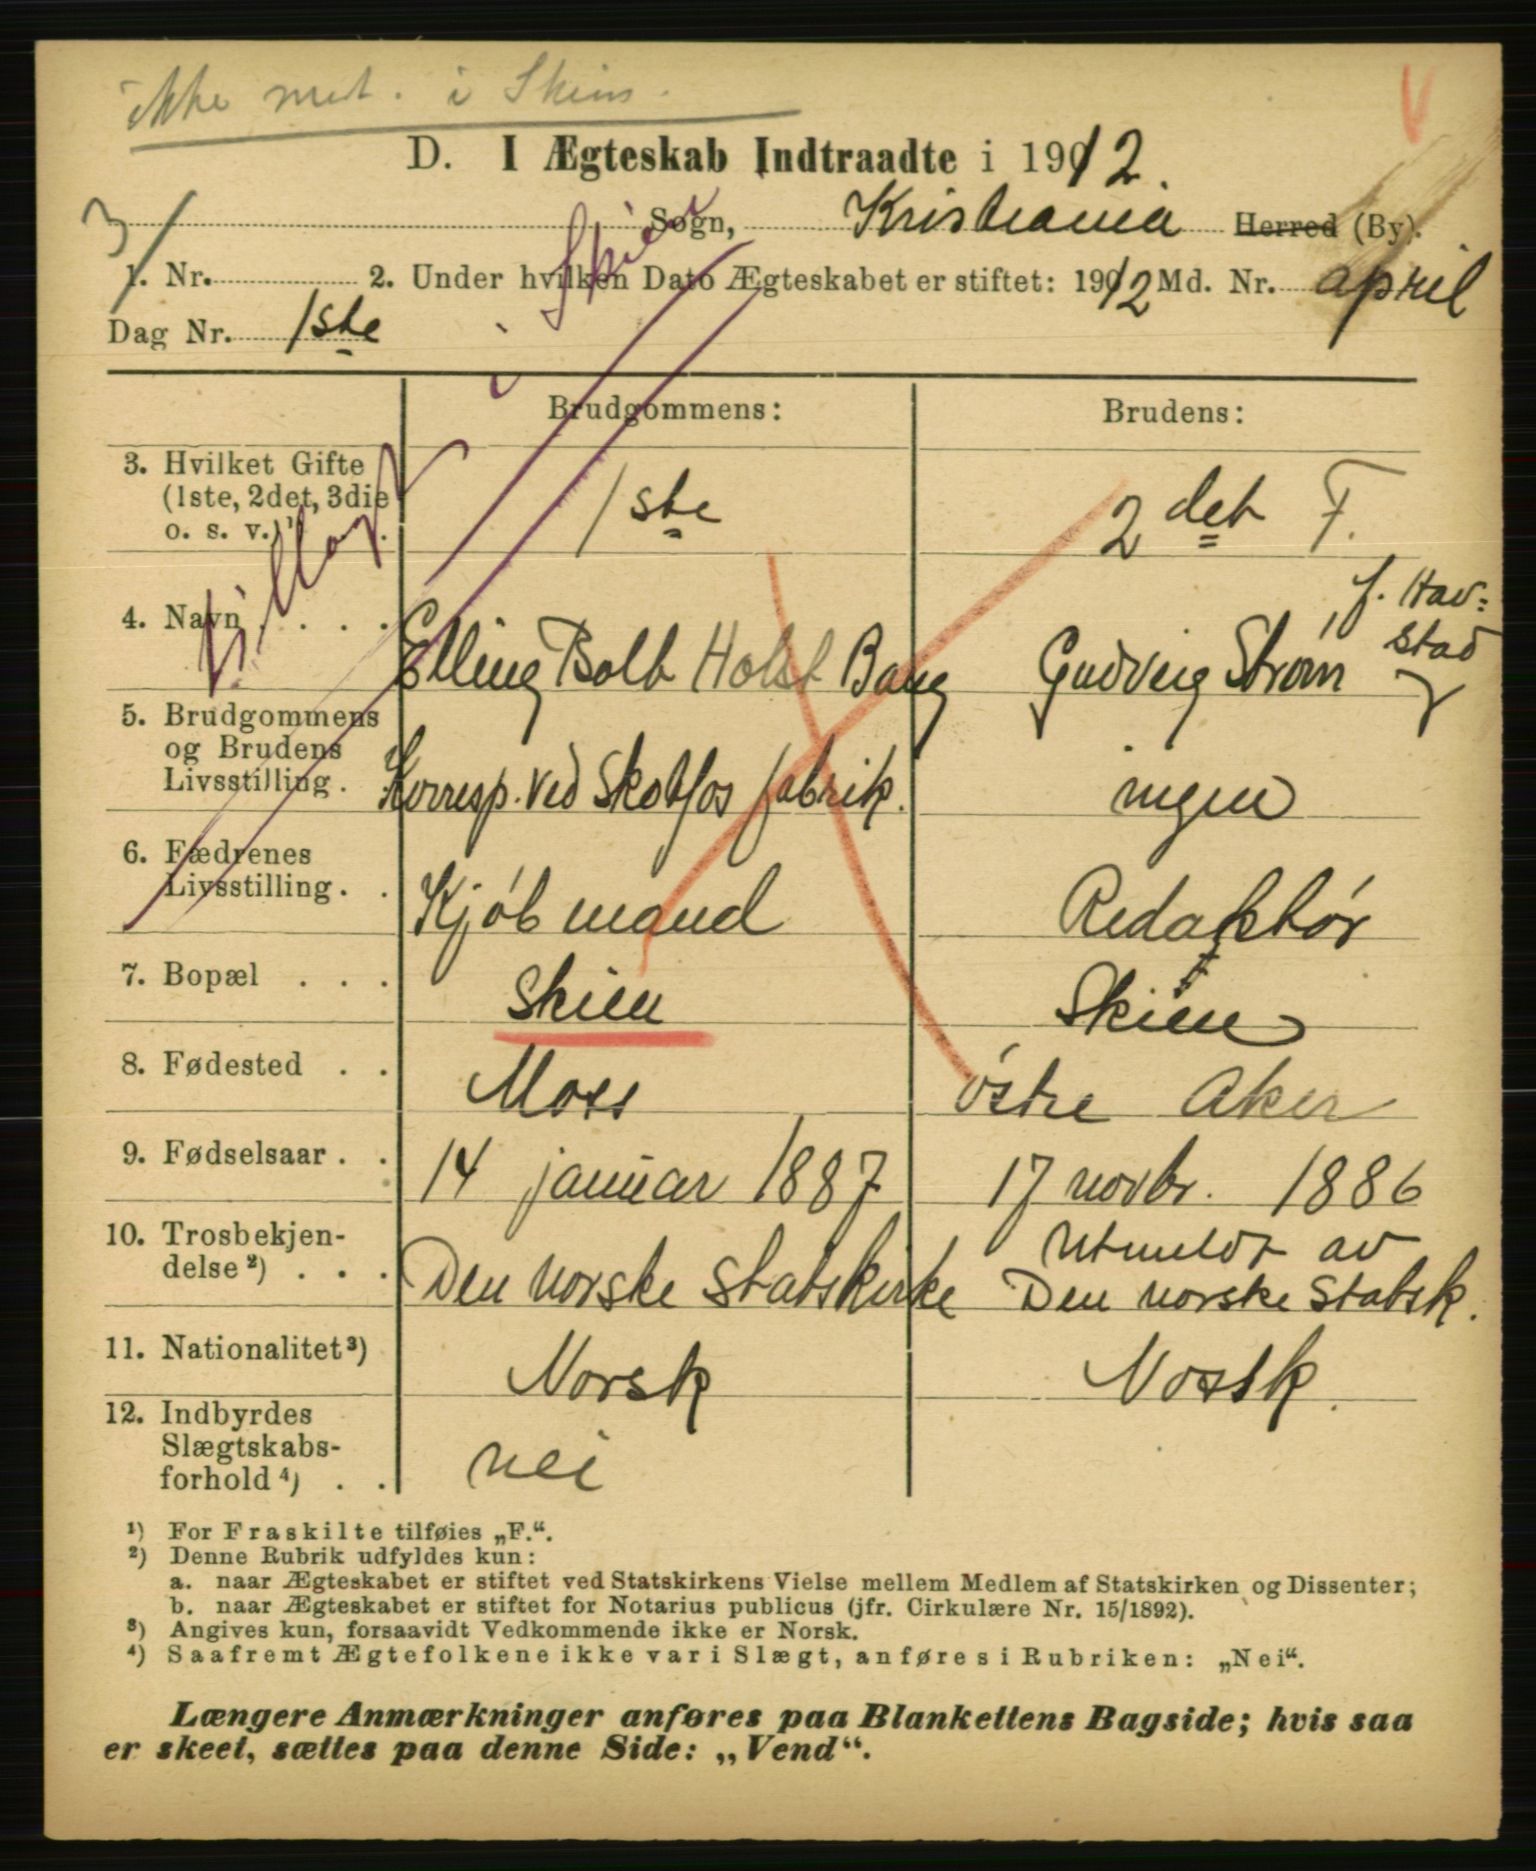 ikke med. i Skien.
V
D. I Ægteskab Indtraadte i 1912.
3/ Sogn, Kristiania Herred (By).
1. Nr. 2. Under hvilken Dato Ægteskabet er stiftet: 1912 Md. Nr. april
Dag Nr. 1ste
i Skien
Brudgommens: Brudens:
3. Hvilket Gifte (1ste, 2det, 3die o. s. v.)¹) 1ste 2det F.
4. Navn Elling Bolt Holst Bang Gudveig Strøm, f. Hav=
stad
5. Brudgommens og Brudens Livsstilling. Korresp. ved Skotfos fabrik. ingen
6. Fædrenes Livsstilling. Kjøbmand Redaktør
7. Bopæl Skien Skien
8. Fødested Moss Østre Aker
9. Fødselsaar 14 januar 1887 17 novbr. 1886
10. Trosbekjen-
delse²) Den norske Statskirke Utmeldt av
Den norske Statsk.
11. Nationalitet³) Norsk Norsk.
12. Indbyrdes
Slægtskabs-
forhold⁴) nei
¹) For Fraskilte tilføies „F.“.
²) Denne Rubrik udfyldes kun:
a. naar Ægteskabet er stiftet ved Statskirkens Vielse mellem Medlem af Statskirken og Dissenter;
b. naar Ægteskabet er stiftet for Notarius publicus (jfr. Cirkulære Nr. 15/1892).
³) Angives kun, forsaavidt Vedkommende ikke er Norsk.
⁴) Saafremt Ægtefolkene ikke var i Slægt, anføres i Rubriken: „Nei“.
Længere Anmærkninger anføres paa Blankettens Bagside; hvis saa
er skeet, sættes paa denne Side: „Vend“.